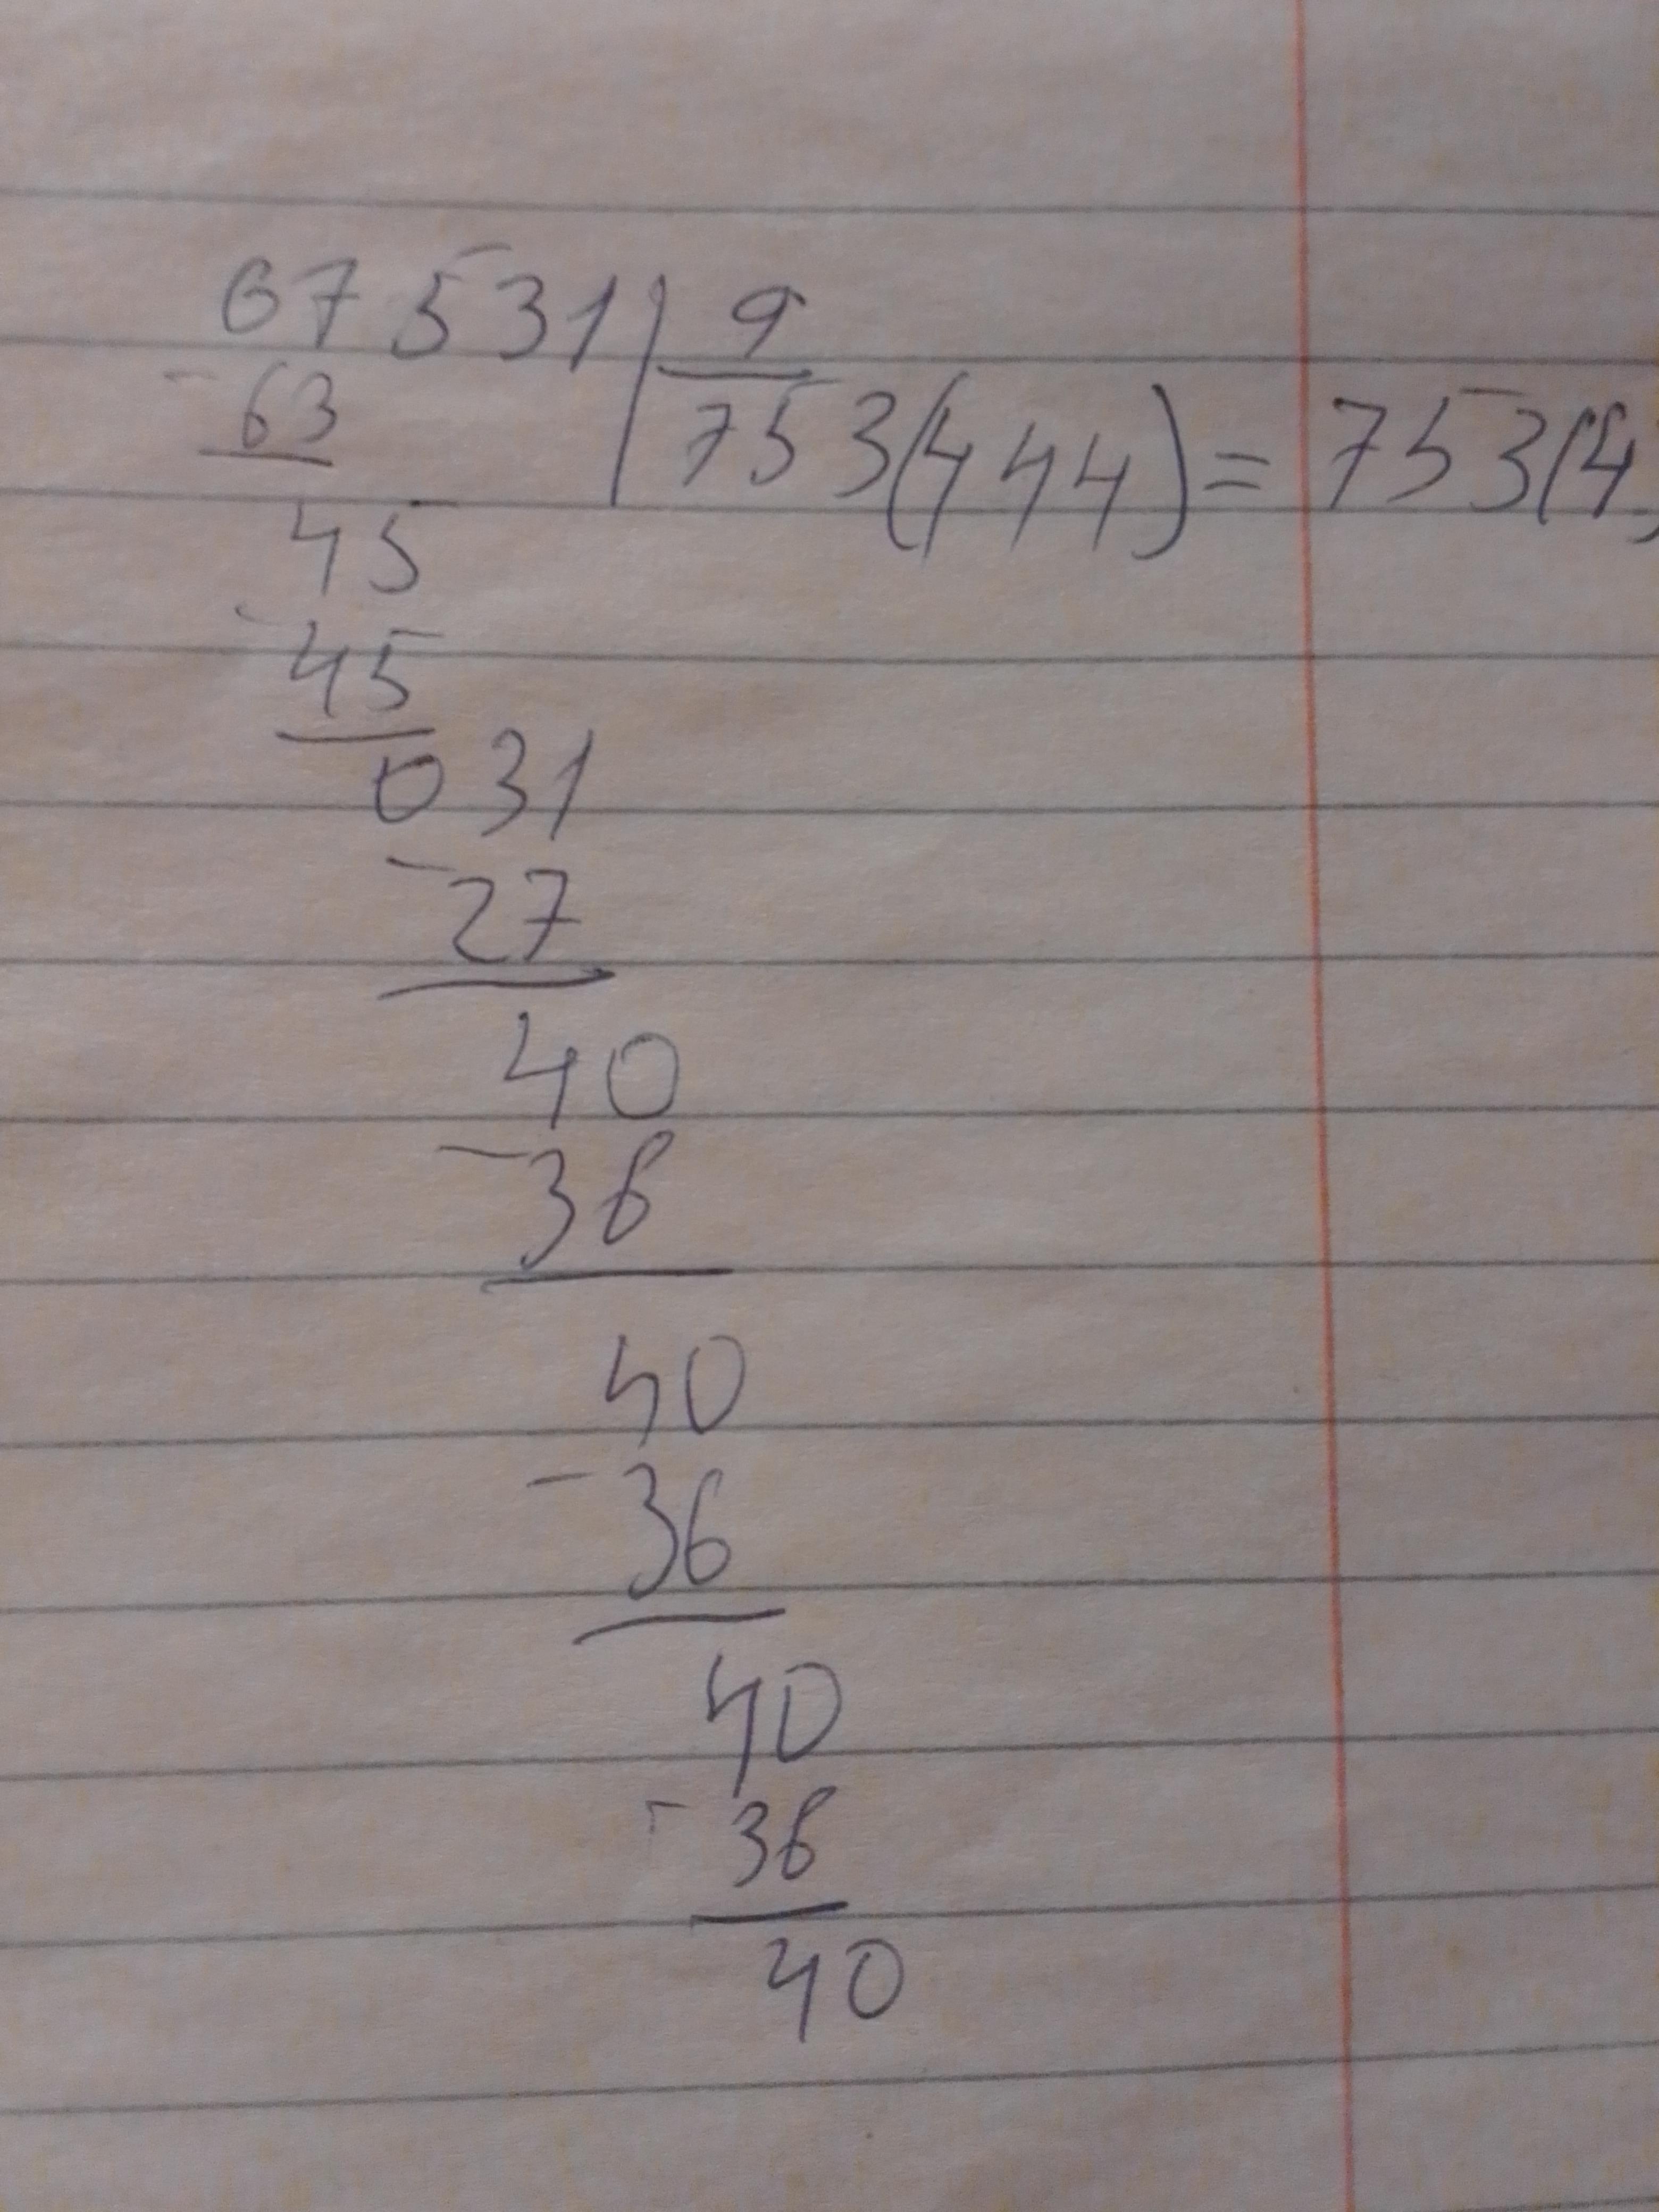 67531 | 9
- 63 753(444) = 753(4)
45
- 45
031
- 27
40
- 36
40
- 36
40
- 36
40